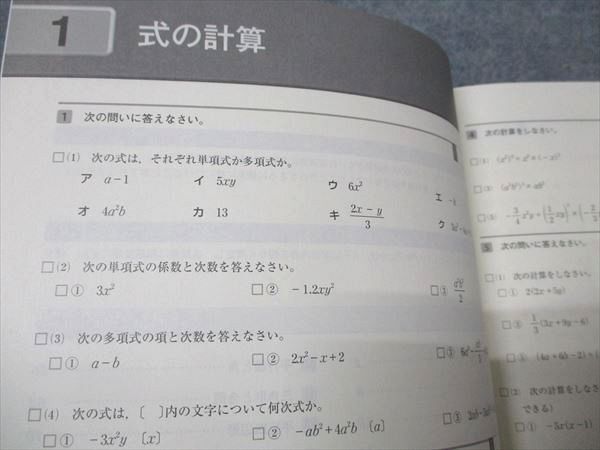 1 式の計算
1 次の問いに答えなさい。
□(1) 次の式は，それぞれ単項式か多項式か。
ア a−1 イ 5xy ウ 6x² エ
オ 4a²b カ 13 キ (2x−y)/3 ク
□(2) 次の単項式の係数と次数を答えなさい。
□① 3x² □② −1.2xy² □③
□(3) 次の多項式の項と次数を答えなさい。
□① a−b □② 2x²−x+2 □③
□(4) 次の式は，〔 〕内の文字について何次式か。
□① −3x²y 〔x〕 □② −ab²+4a²b 〔a〕 □③
4 次の計算をしなさい。
5 次の問いに答えなさい。
□(1) 次の計算をしなさい。
□① 2(2x+5y)
□③ 1/3(3x+9y−6)
□(2) 次の計算をしなさ
できる）
□① −5x(x−1)